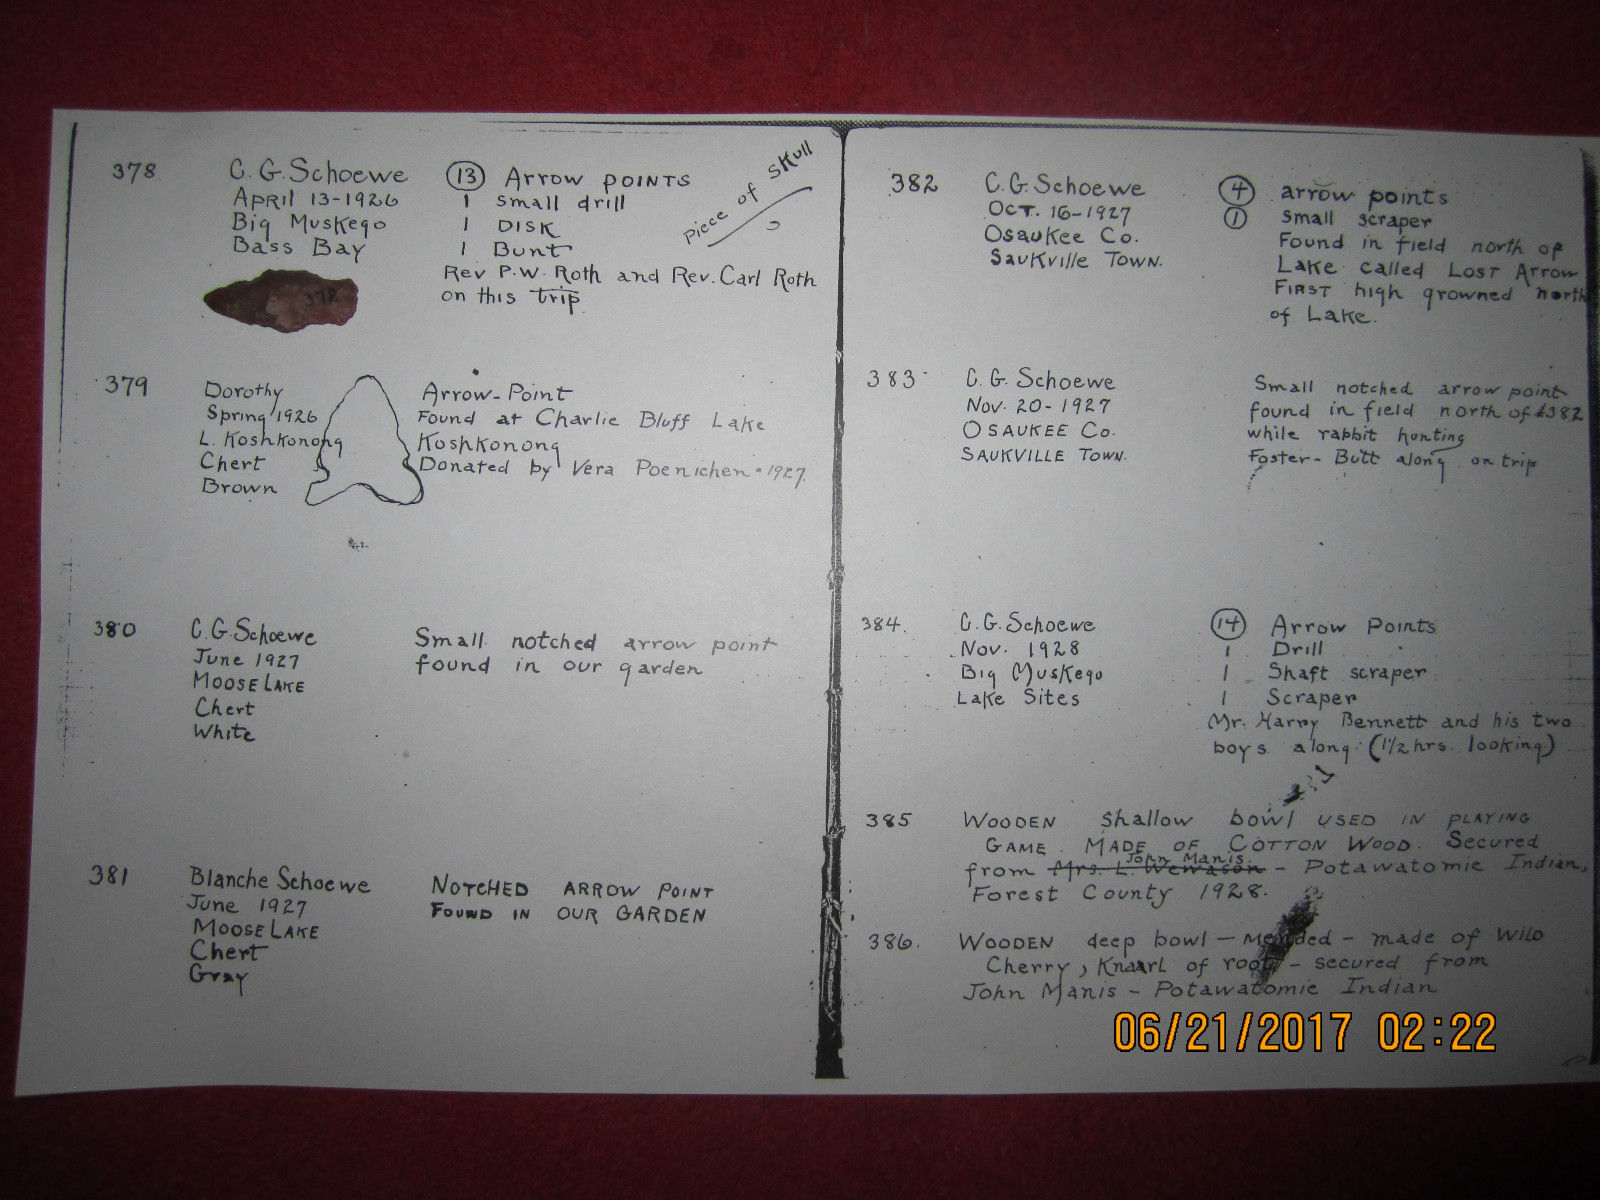 378
C. G. Schoewe
April 13-1926
Big Muskego
Bass Bay
378
13 Arrow points
1 small drill
1 Disk
1 Bunt
Piece of Skull
Rev P.W. Roth and Rev. Carl Roth
on this trip.
379
Dorothy
Spring 1926
L. Koshkonong
Chert
Brown
Arrow-Point
Found at Charlie Bluff Lake
Koshkonong
Donated by Vera Poenichen - 1927.
380
C. G. Schoewe
June 1927
Moose Lake
Chert
White
Small notched arrow point
found in our garden
381
Blanche Schoewe
June 1927
Moose Lake
Chert
Gray
Notched arrow point
Found in our garden
382
C. G. Schoewe
Oct. 16-1927
Osaukee Co.
Saukville Town.
4 arrow points
1 Small scraper
Found in field north of
Lake called Lost Arrow
First high growned north
of Lake.
383
C. G. Schoewe
Nov. 20-1927
Osaukee Co.
Saukville Town.
Small notched arrow point
found in field north of #382
while rabbit hunting
Foster-Butt along on trip
384.
C. G. Schoewe
Nov. 1928
Big Muskego
Lake Sites
14 Arrow Points
1 Drill
1 Shaft scraper
1 Scraper
Mr. Harry Bennett and his two
boys along. (1 1/2 hrs. looking.)
385
Wooden shallow bowl used in playing
Game. Made of Cotton Wood. Secured
John Manis.
from Mrs. L. Wewason - Potawatomie Indian,
Forest County 1928.
386.
Wooden deep bowl - Mended - made of Wild
Cherry, Knaarl of root - secured from
John Manis - Potawatomie Indian
06/21/2017 02:22